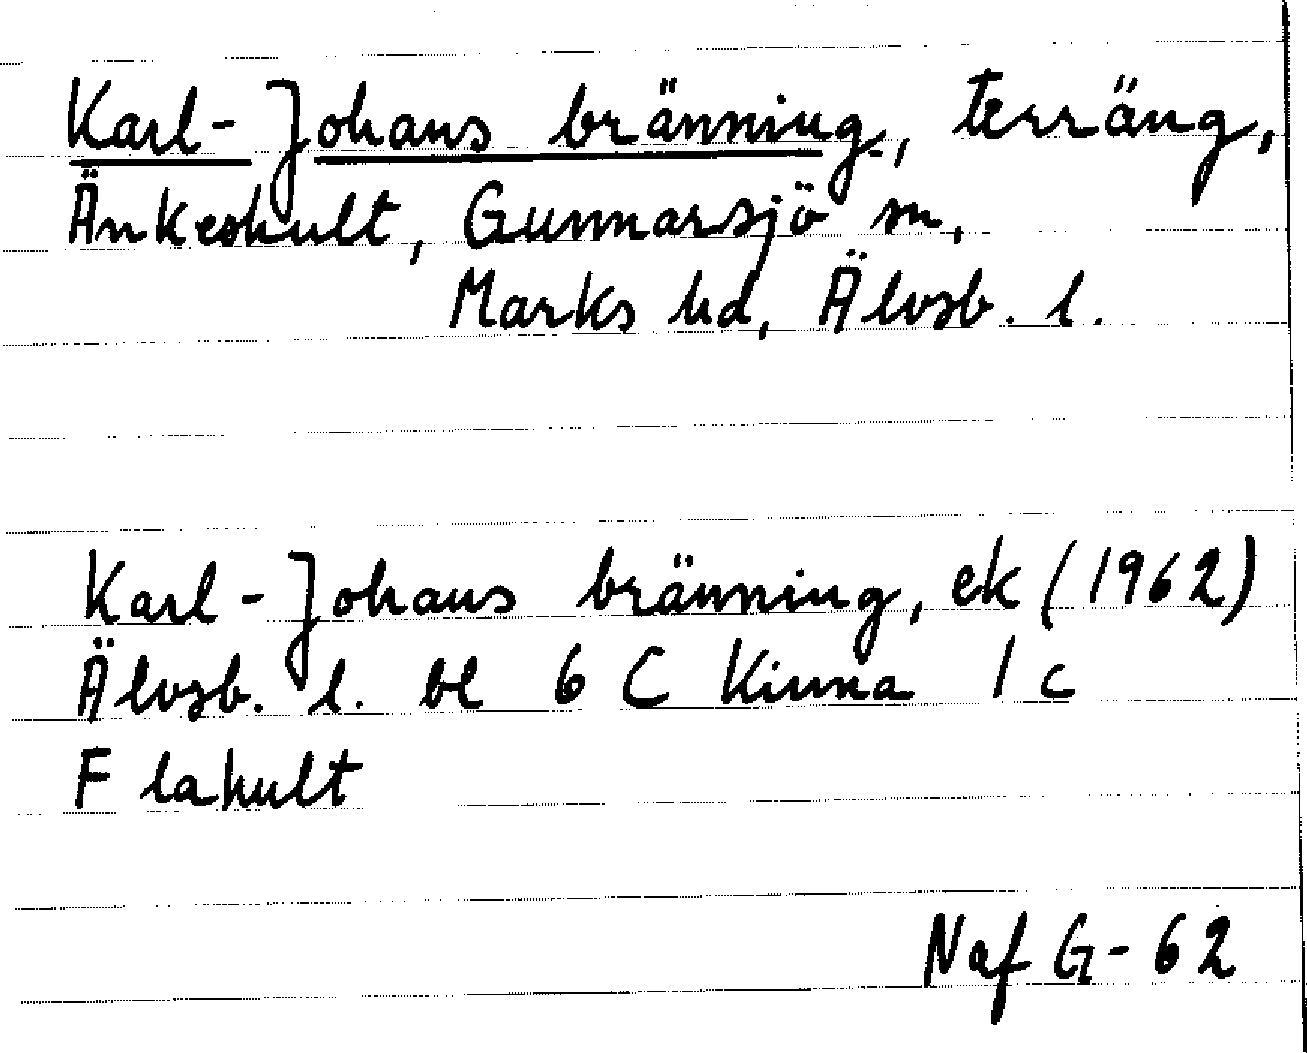 Karl-Johans bränning, terräng,
Änkeshult, Gunnarsjö sn,
Marks hd, Älvsb. l.
Karl-Johans bränning, ek (1962)
Älvsb. l. bl 6 C Kinna 1 c
Flahult
Naf G-62